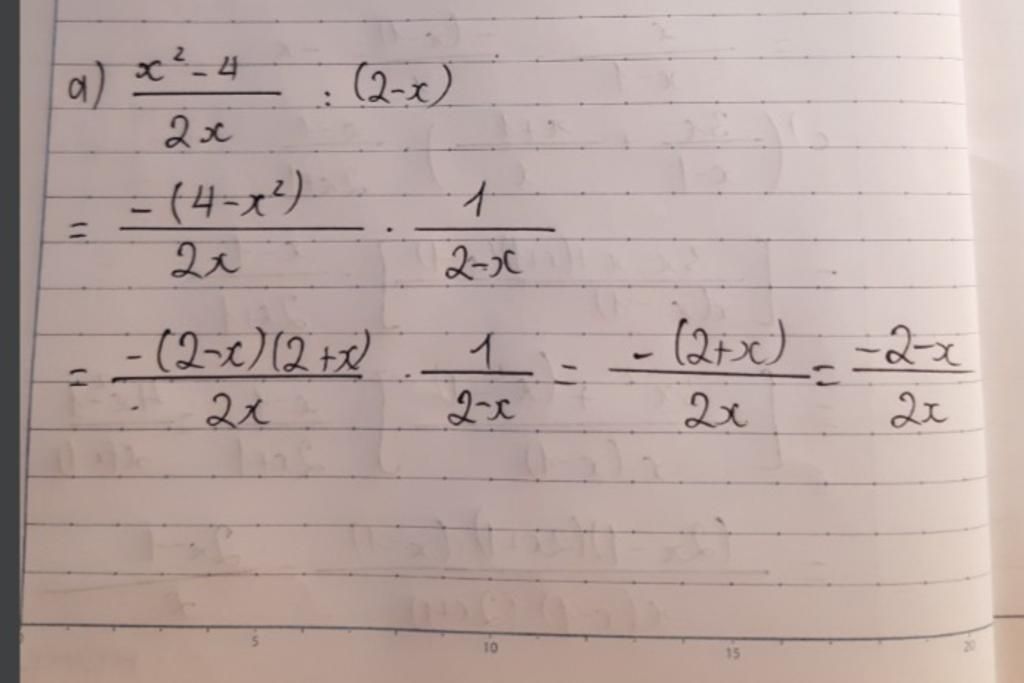 a) \frac{x^2-4}{2x} : (2-x)
= \frac{-(4-x^2)}{2x} \cdot \frac{1}{2-x}
= \frac{-(2-x)(2+x)}{2x} \cdot \frac{1}{2-x} = \frac{-(2+x)}{2x} = \frac{-2-x}{2x}
5 10 15 20